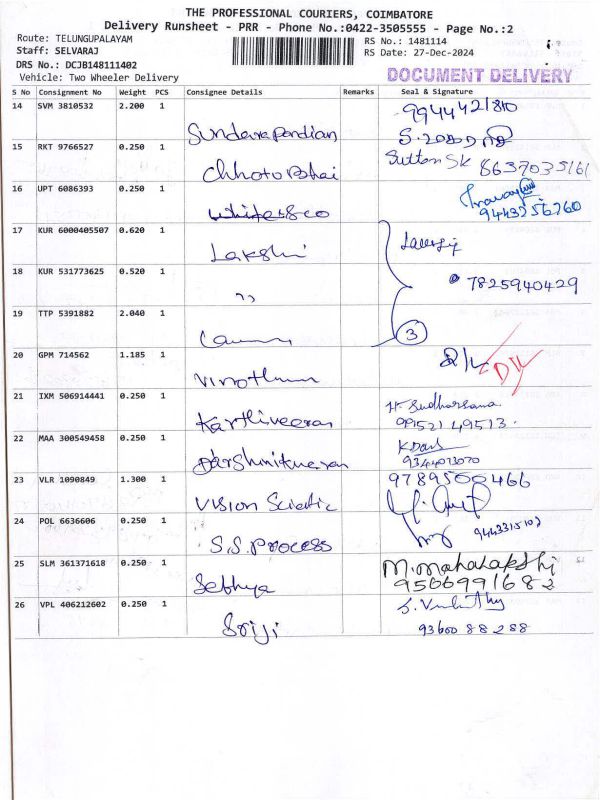 THE PROFESSIONAL COURIERS, COIMBATORE
Delivery Runsheet - PRR - Phone No.:0422-3505555 - Page No.:2
Route: TELUNGUPALAYAM
RS No.: 1481114
Staff: SELVARAJ
RS Date: 27-Dec-2024
DRS No.: DCJB148111402
Vehicle: Two Wheeler Delivery
DOCUMENT DELIVERY
S No Consignment No Weight PCS Consignee Details Remarks Seal & Signature
14 SVM 3810532 2.200 1
9944421810
Sundarapandian
15 RKT 9766527 0.250 1
Sutton SK 8637035161
Chhoto Bhai
16 UPT 6086393 0.250 1
9443256260
17 KUR 6000405507 0.620 1
Lakshi
18 KUR 531773625 0.520 1
7825940429
19 TTP 5391882 2.040 1
3
20 GPM 714562 1.185 1
D/L
21 IXM 506914441 0.250 1
H. Sudharsana
Karthiveeran
09521 49513
22 MAA 300549458 0.250 1
9344073070
23 VLR 1090849 1.300 1
9789500466
Vision
24 POL 6636606 0.250 1
9443315102
S.S. Process
25 SLM 361371618 0.250 1
M. Mahalakshi
9566991682
Sethya
26 VPL 406212602 0.250 1
Sriji
93600 88288